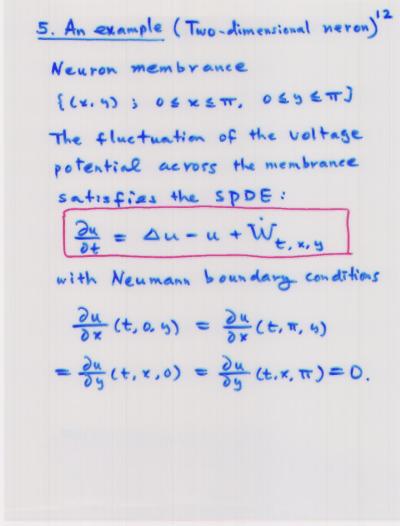 5. An example (Two-dimensional neron) 12
Neuron membrance
{(x, y) ; 0 ≤ x ≤ π, 0 ≤ y ≤ π}
The fluctuation of the voltage
potential across the membrance
satisfies the SPDE:
∂u/∂t = Δu - u + Ẇ_{t, x, y}
with Neumann boundary conditions
∂u/∂x (t, 0, y) = ∂u/∂x (t, π, y)
= ∂u/∂y (t, x, 0) = ∂u/∂y (t, x, π) = 0.